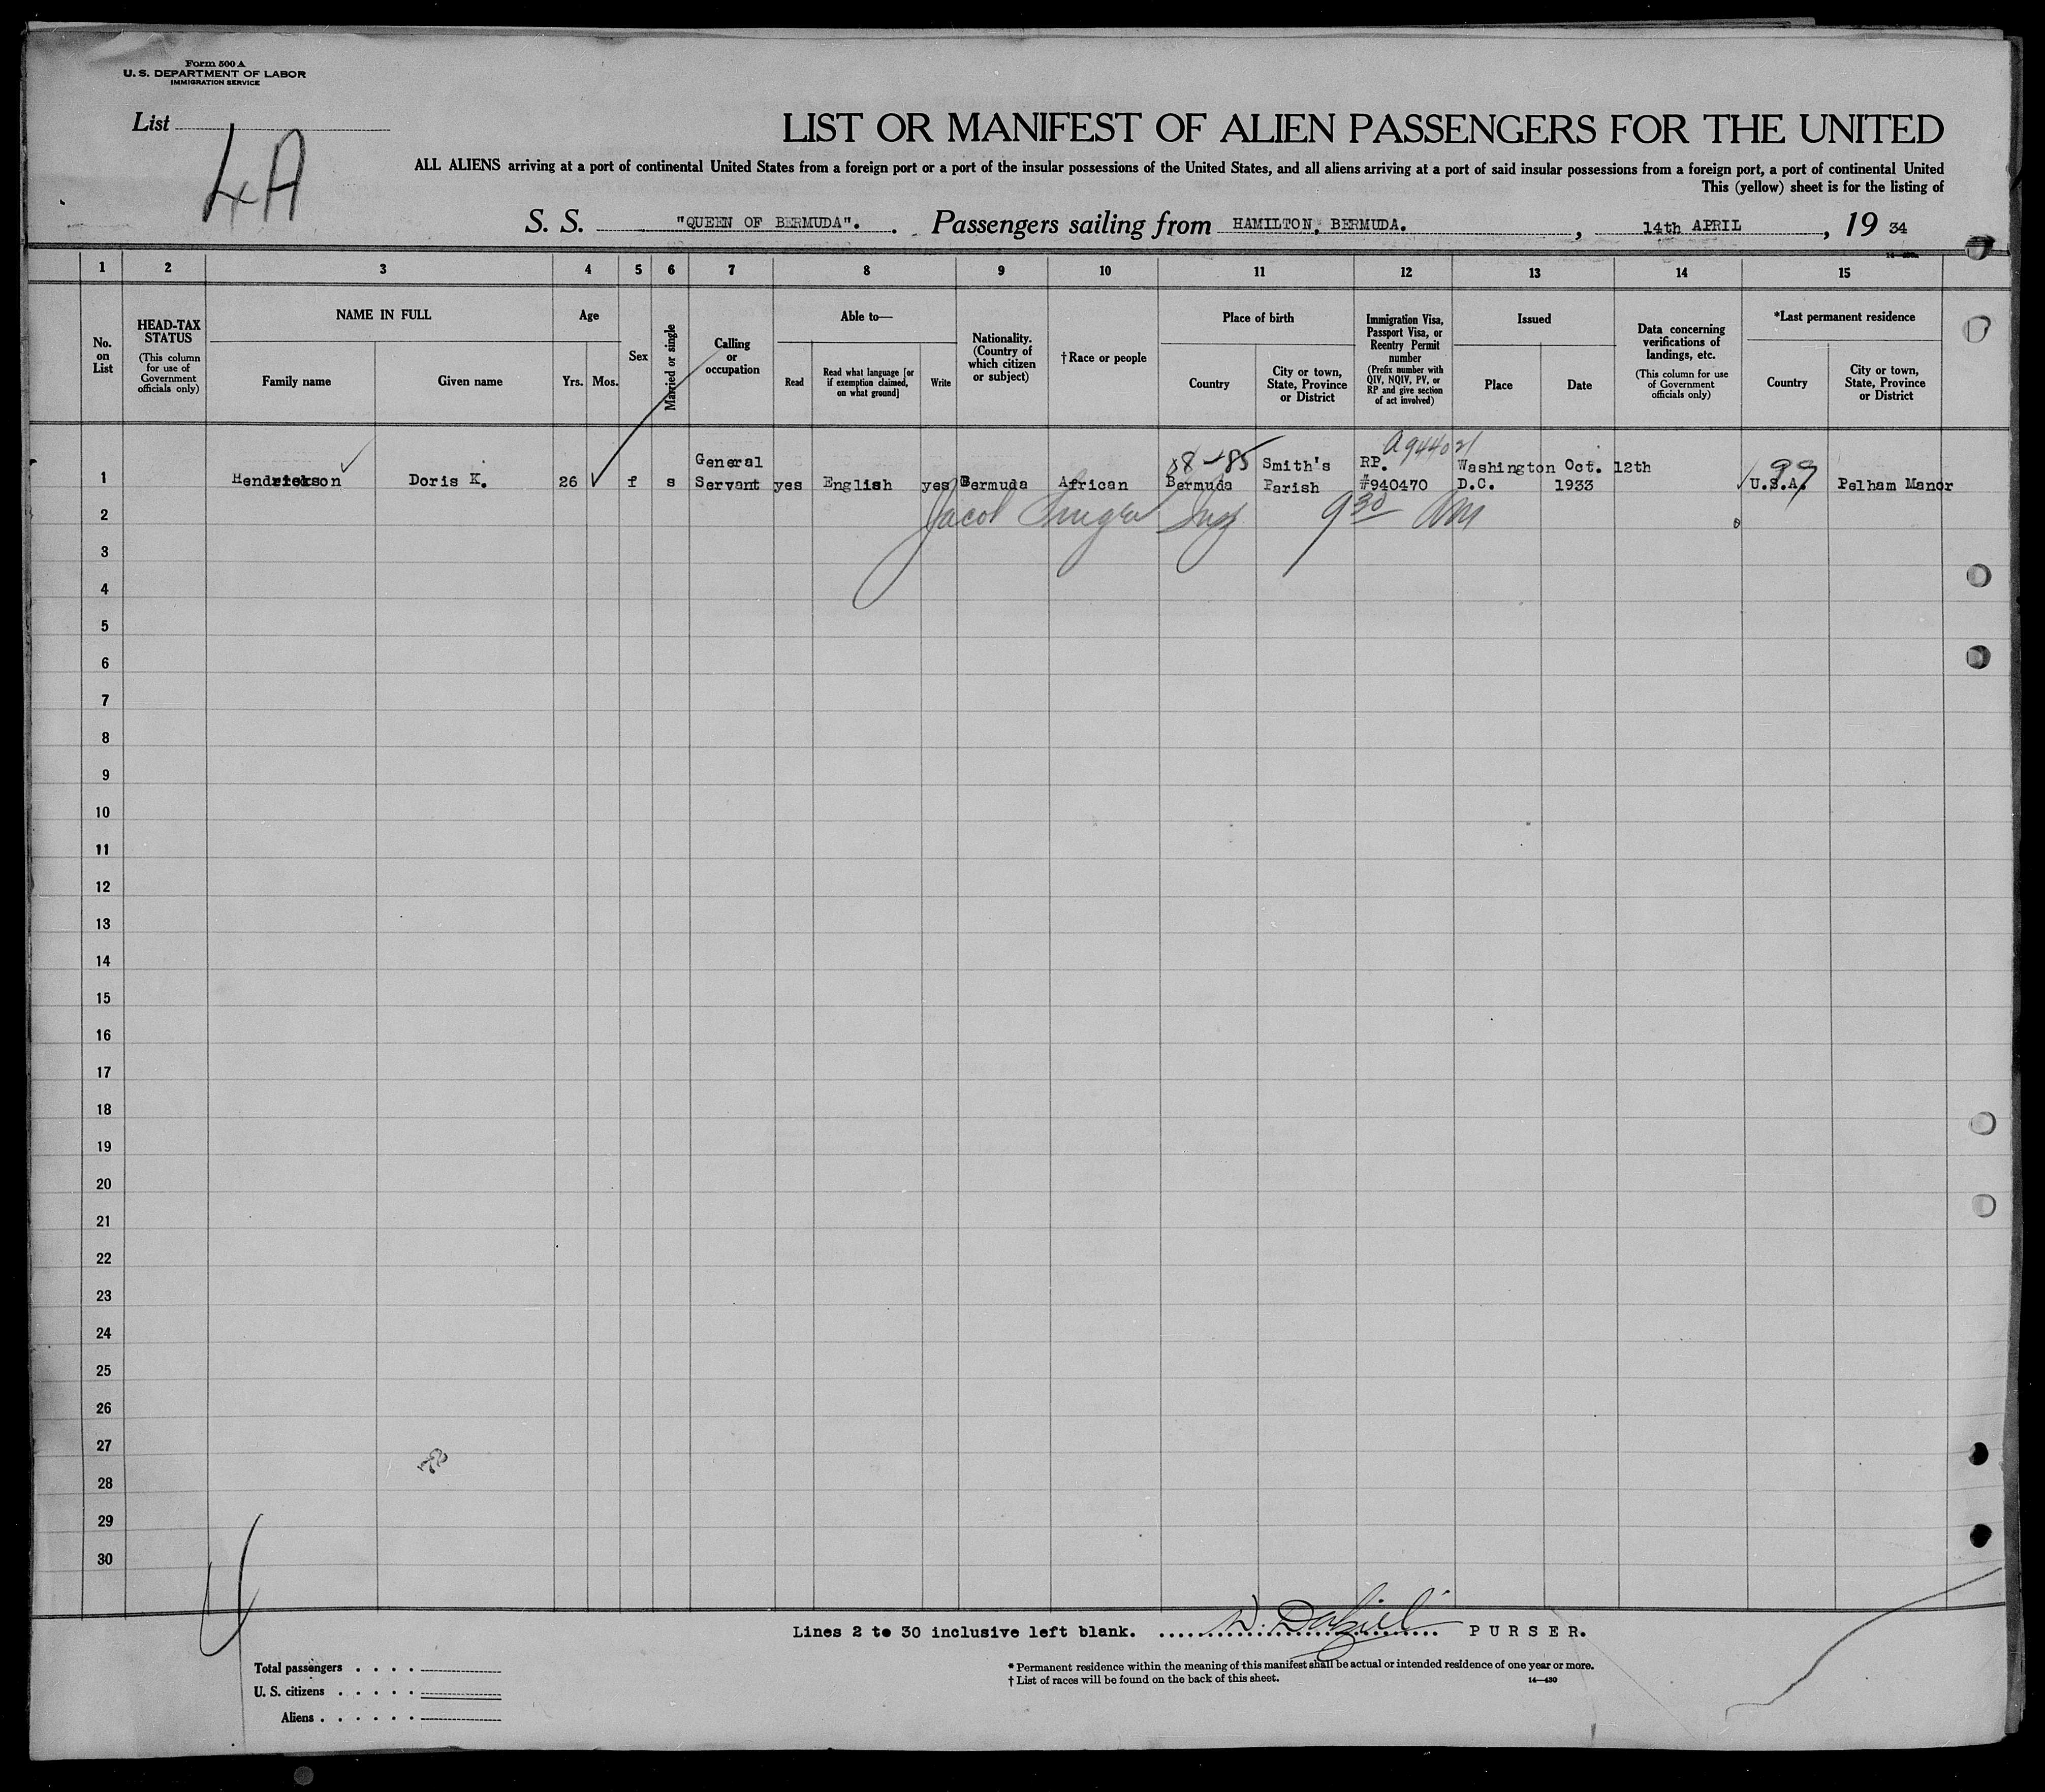 Form 500 A
U. S. DEPARTMENT OF LABOR
IMMIGRATION SERVICE
List
4A
LIST OR MANIFEST OF ALIEN PASSENGERS FOR THE UNITED
ALL ALIENS arriving at a port of continental United States from a foreign port or a port of the insular possessions of the United States, and all aliens arriving at a port of said insular possessions from a foreign port, a port of continental United
This (yellow) sheet is for the listing of
S. S. "QUEEN OF BERMUDA". Passengers sailing from HAMILTON, BERMUDA. , 14th APRIL , 19 34
1 2 3 4 5 6 7 8 9 10 11 12 13 14 15
No. on List
HEAD-TAX STATUS
(This column for use of Government officials only)
NAME IN FULL
Family name
Given name
Age
Yrs.
Mos.
Sex
Married or single
Calling or occupation
Able to—
Read
Read what language [or if exemption claimed, on what ground]
Write
Nationality. (Country of which citizen or subject)
†Race or people
Place of birth
Country
City or town, State, Province or District
Immigration Visa, Passport Visa, or Reentry Permit number
(Prefix number with QIV, NQIV, PV, or RP and give section of act involved)
Issued
Place
Date
Data concerning verifications of landings, etc.
(This column for use of Government officials only)
*Last permanent residence
Country
City or town, State, Province or District
A944021
General Smith's RP. Washington Oct. 12th 99
1 Hendrickson Doris K. 26 f s Servant yes English yes Bermuda African Bermuda Parish #940470 D.C. 1933 U.S.A. Pelham Manor
2 Jacob 9 30 AM
3
4
5
6
7
8
9
10
11
12
13
14
15
16
17
18
19
20
21
22
23
24
25
26
27
28
29
30
Lines 2 to 30 inclusive left blank. PURSER.
Total passengers
U. S. citizens
Aliens
* Permanent residence within the meaning of this manifest shall be actual or intended residence of one year or more.
† List of races will be found on the back of this sheet.
14—430